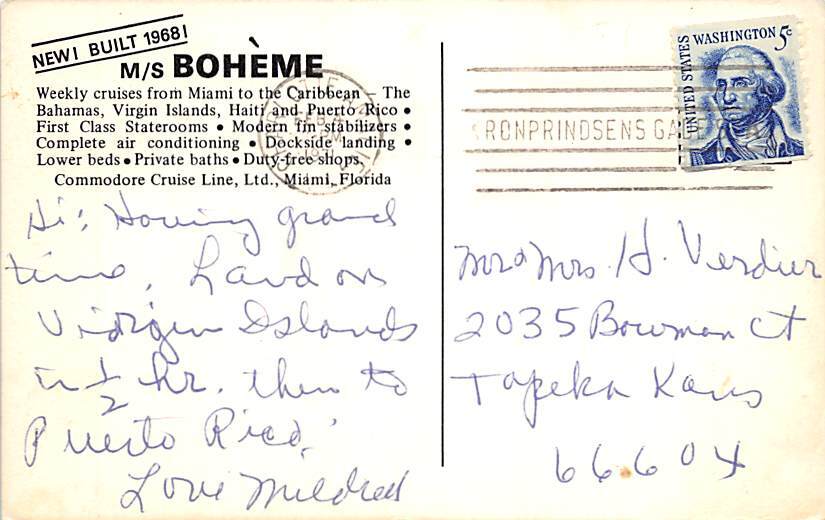 NEW! BUILT 1968!
M/S BOHÈME
Weekly cruises from Miami to the Caribbean – The
Bahamas, Virgin Islands, Haiti and Puerto Rico •
First Class Staterooms • Modern fin stabilizers •
Complete air conditioning • Dockside landing •
Lower beds • Private baths • Duty-free shops.
Commodore Cruise Line, Ltd., Miami, Florida
Hi: Having grand
time. Land on
Virgin Islands
in 1/2 hr. then to
Puerto Rico.
Love Mildred
UNITED STATES WASHINGTON 5c
RONPRINDSENS GADE
Mr & Mrs. H. Verdier
2035 Bowman Ct
Topeka Kans
66604